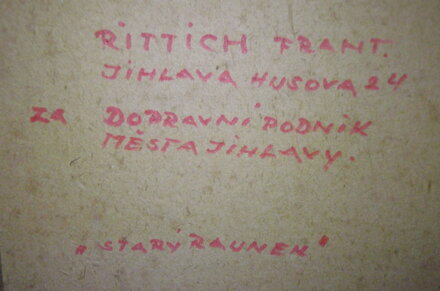 RITTICH FRANT.
JIHLAVA HUSOVA 24
ZA DOPRAVNÍ PODNIK
MĚSTA JIHLAVY.
„STARÝ RAUNEK"